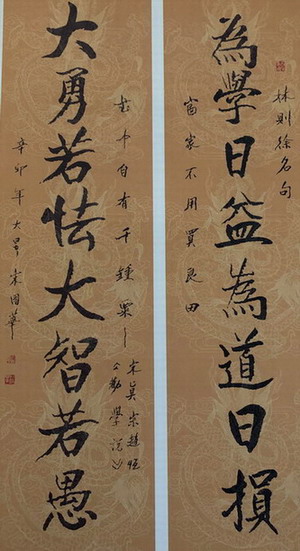 林則徐名句
為學日益為道日損
富家不用買良田
書中自有千鍾粟
宋真宗趙恒
勸學
大勇若怯大智若愚
辛卯年 宋國華